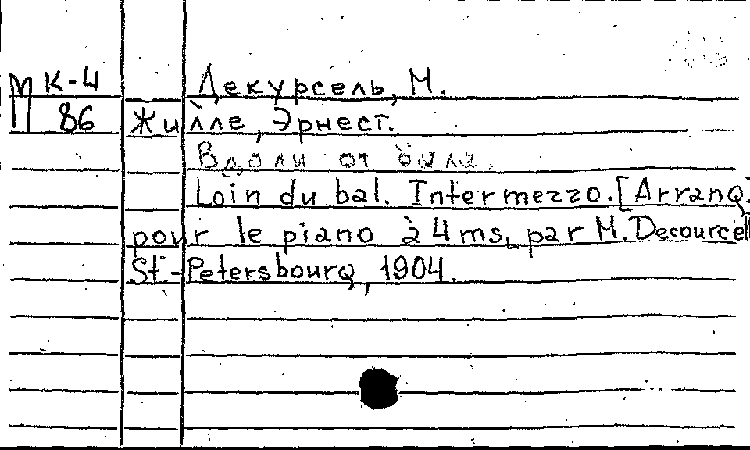 М К-4 Декурсель, М.
П 86 Жилле, Эрнест.
Вдали от бала.
Loin du bal. Intermezzo. [Arrang.
pour le piano à 4 ms, par M. Decourcel
St.-Petersbourg, 1904.